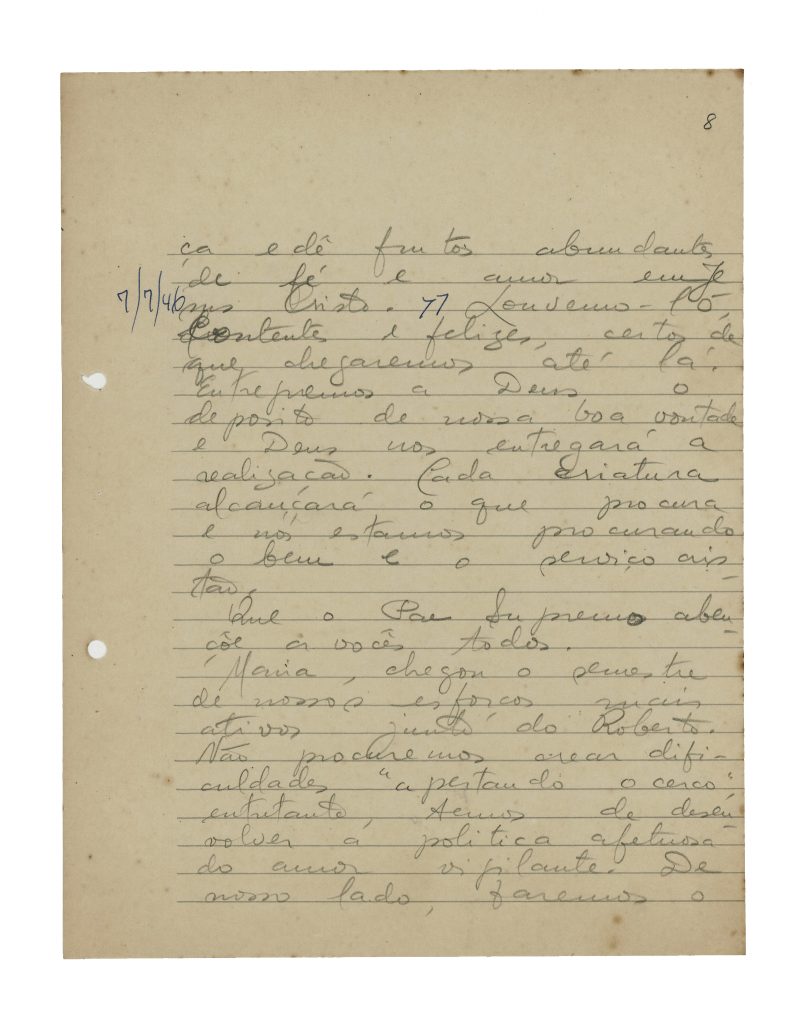 8
ça e dê frutos abundantes
de fé e amor em Je
7/7/46 sus Cristo. 77 Louvemo-lô,
Contentes e felizes, certos de
que chegaremos até lá.
Entreguemos a Deus o
deposito de nossa boa vontade
e Deus nos entregará a
realização. Cada criatura
alcançará o que procura
e nós estamos procurando
o bem e o serviço cris
tão.
Que o Pae Supremo aben-
çôe a vocês todos.
Maria, chegou o semestre
de nossos esforços mais
ativos junto do Roberto.
Não procuremos crear difi-
culdades "apertando o cerco"
entretanto, temos de desen-
volver a politica afetuosa
do amor vigilante. De
nosso lado, faremos o